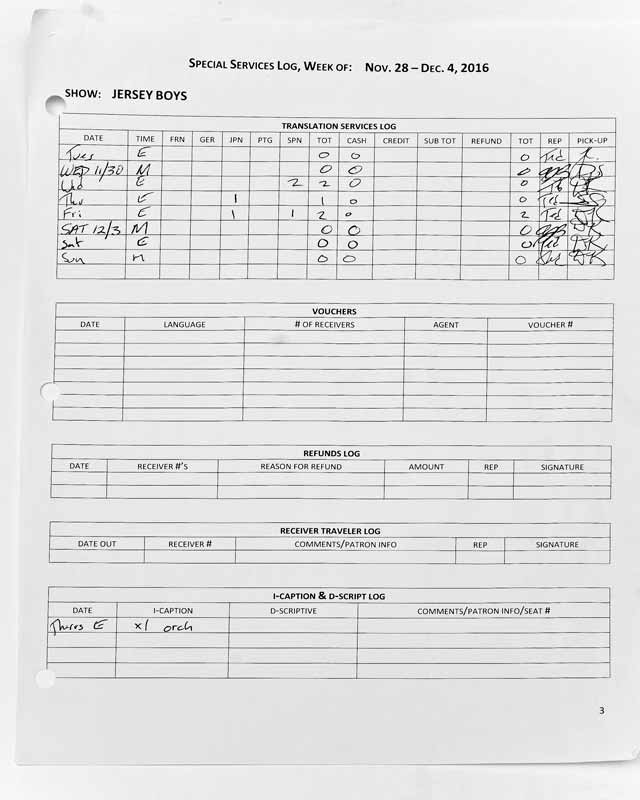 SPECIAL SERVICES LOG, WEEK OF: NOV. 28 – DEC. 4, 2016
SHOW: JERSEY BOYS
TRANSLATION SERVICES LOG
DATE TIME FRN GER JPN PTG SPN TOT CASH CREDIT SUB TOT REFUND TOT REP PICK-UP
Tues E 0 0 0 Ted
WED 11/30 M 0 0 0
Wed E 2 2 0 0
Thu E 1 1 0 0 Ted
Fri E 1 1 2 0 2 Ted
SAT 12/3 M 0 0 0
Sat E 0 0 0
Sun M 0 0 0
VOUCHERS
DATE LANGUAGE # OF RECEIVERS AGENT VOUCHER #
REFUNDS LOG
DATE RECEIVER #'S REASON FOR REFUND AMOUNT REP SIGNATURE
RECEIVER TRAVELER LOG
DATE OUT RECEIVER # COMMENTS/PATRON INFO REP SIGNATURE
I-CAPTION & D-SCRIPT LOG
DATE I-CAPTION D-SCRIPTIVE COMMENTS/PATRON INFO/SEAT #
Thurs E x1 orch
3